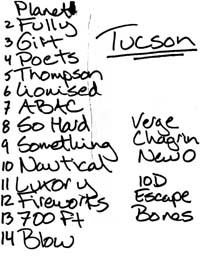 Planet
2 Fully
3 Girt
4 Poets
5 Thompson
6 Lionised
7 ABAC
8 So Hard
9 Something
10 Nautical
11 Luxury
12 Fireworks
13 700 Ft
14 Blow
Tucson
Verge
Chagrin
New O
10D
Escape
Bones